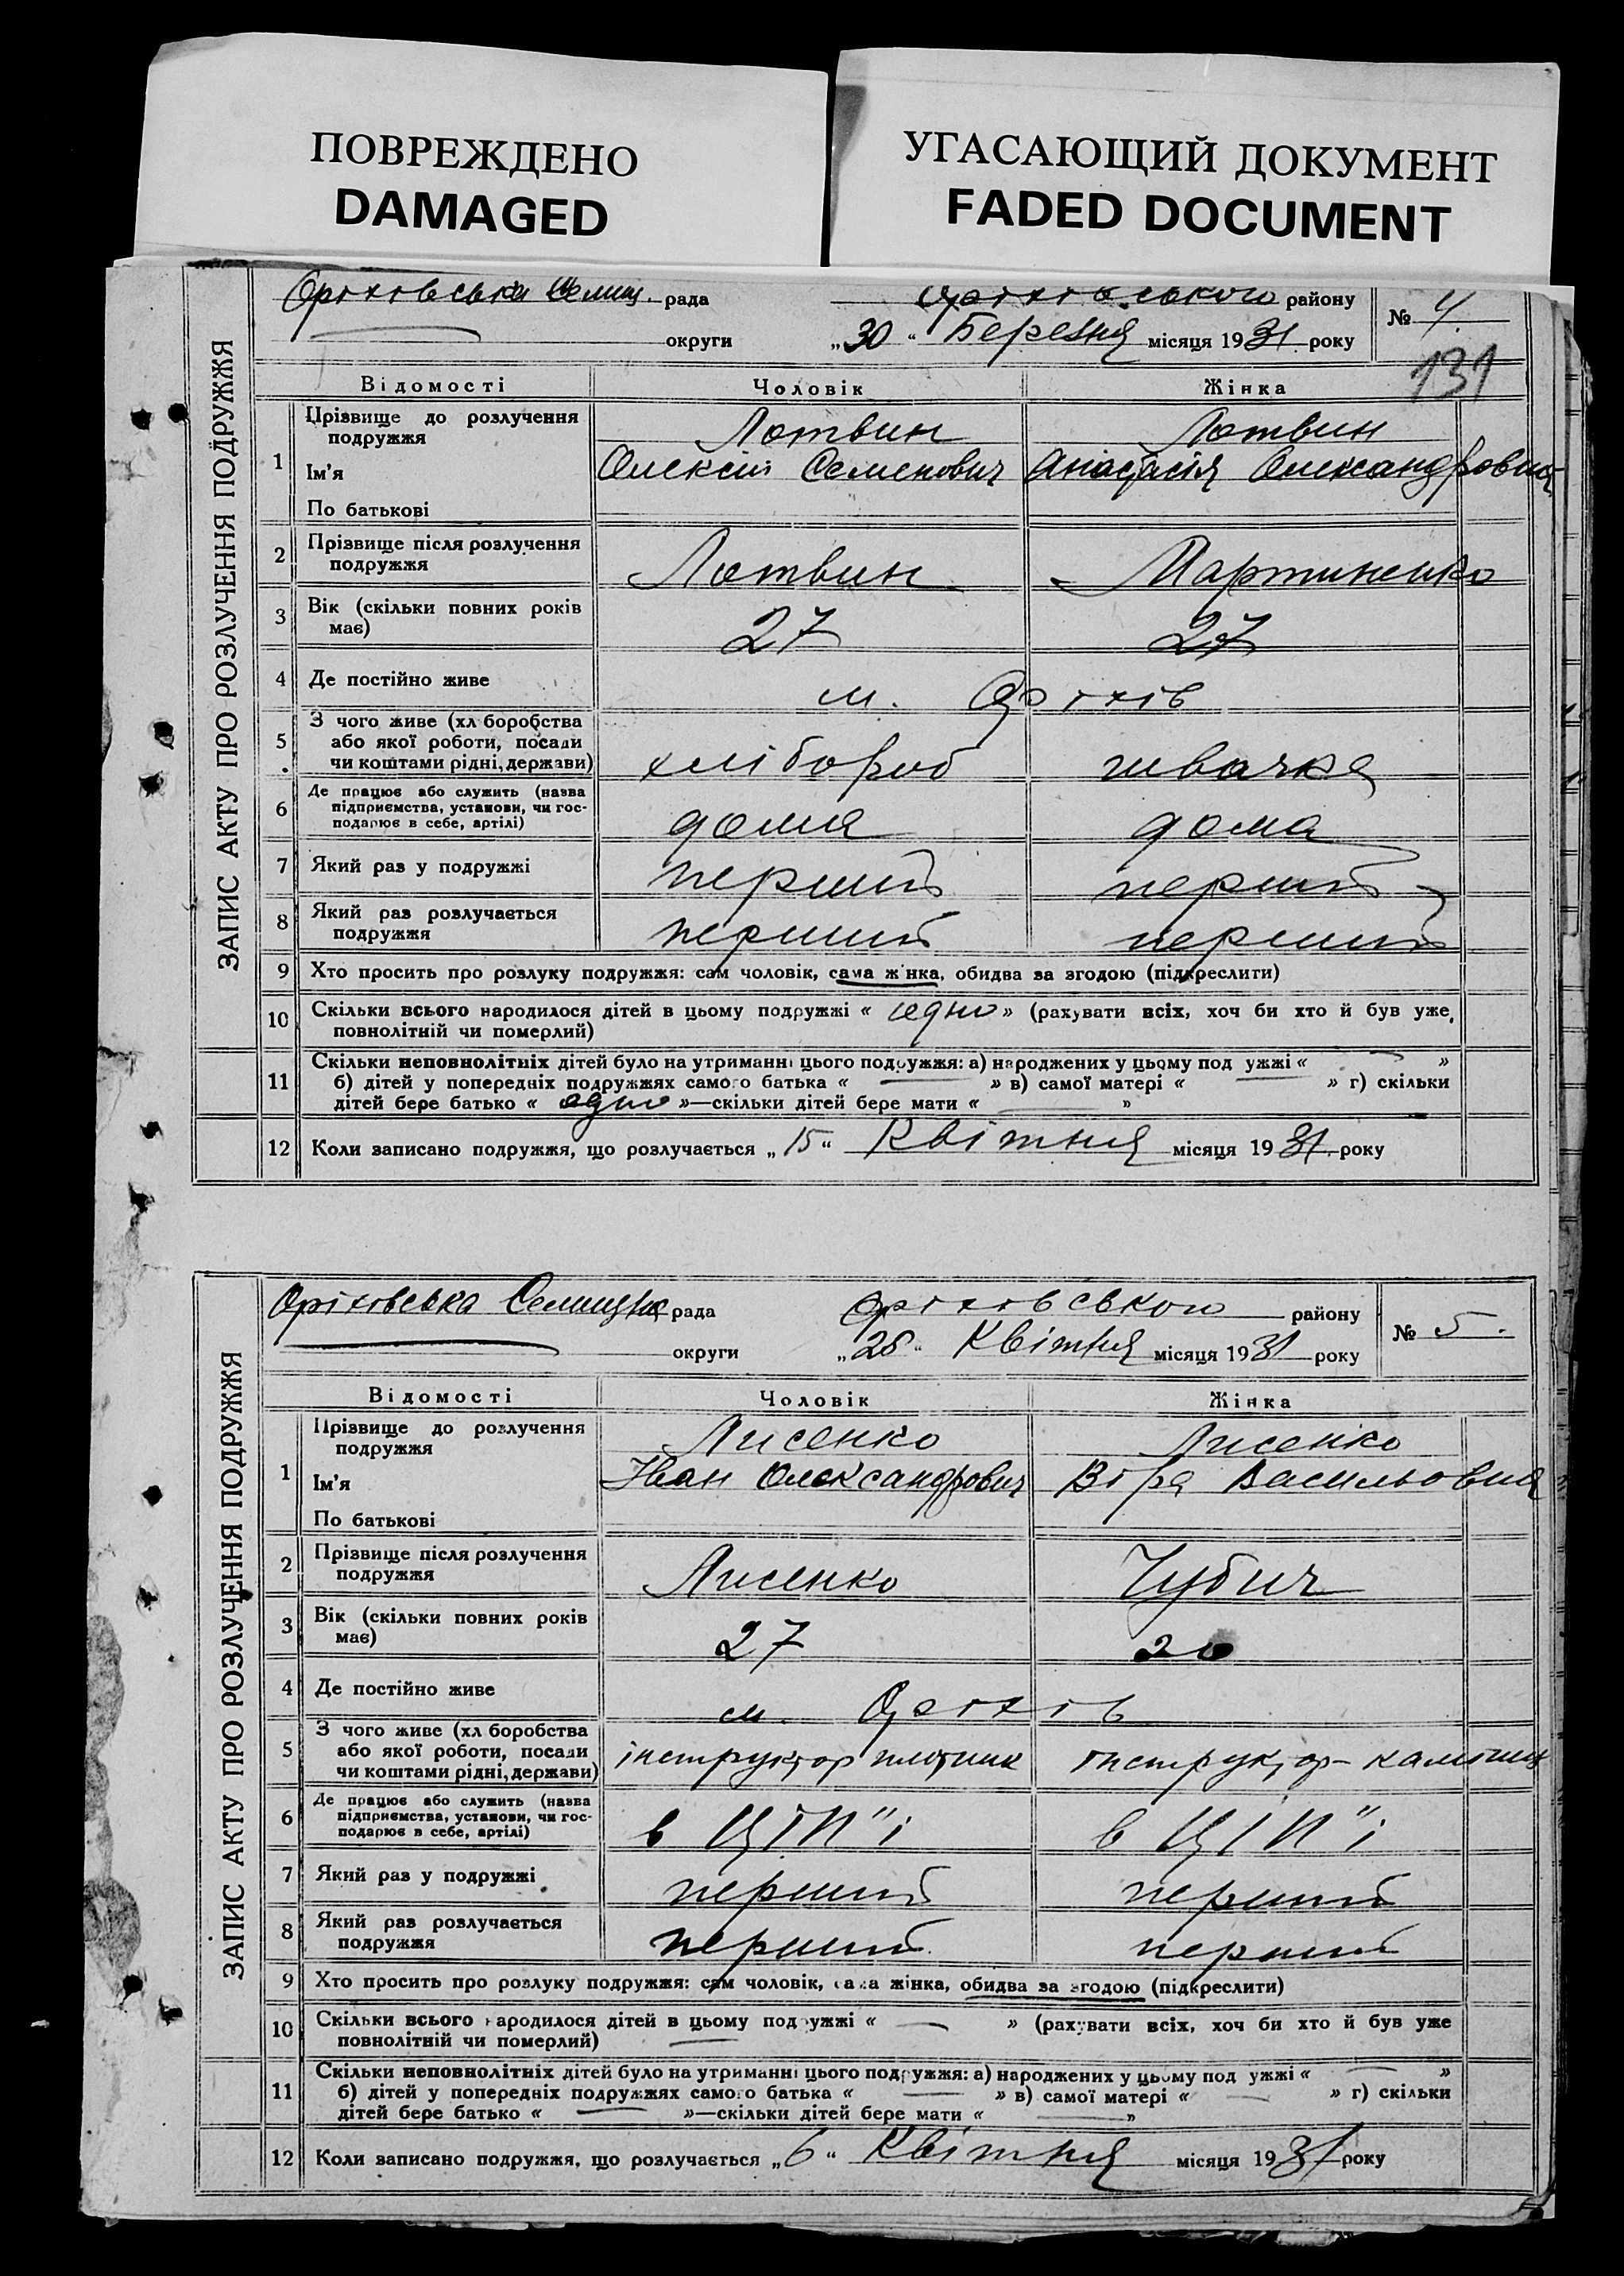 ПОВРЕЖДЕНО
DAMAGED
УГАСАЮЩИЙ ДОКУМЕНТ
FADED DOCUMENT
ЗАПИС АКТУ ПРО РОЗЛУЧЕННЯ ПОДРУЖЖЯ
Оріхівська Селищ. рада Оріхівського району № 4
округи „30“ Березня місяця 1931 року
131
Відомості Чоловік Жінка
1 Прізвище до розлучення Лотвин Лотвин
подружжя
Ім’я Олексій Семенович Анастасія Олександровна
По батькові
2 Прізвище після розлучення Лотвин Мартиненко
подружжя
3 Вік (скільки повних років 27 27
має)
4 Де постійно живе м. Оріхів
5 З чого живе (хл боробства
або якої роботи, посади хлібороб швачка
чи коштами рідні, держави)
6 Де працює або служить (назва
підприємства, установи, чи гос- дома дома
подарює в себе, артілі)
7 Який раз у подружжі перший перший
8 Який раз розлучається перший перший
подружжя
9 Хто просить про розлуку подружжя: сам чоловік, сама ж нка, обидва за згодою (підкреслити)
10 Скільки всього народилося дітей в цьому подружжі « одно » (рахувати всіх, хоч би хто й був уже,
повнолітній чи померлий)
11 Скільки неповнолітніх дітей було на утриманні цього подружжя: а) народжених у цьому под ужжі « — »
б) дітей у попередніх подружжях самого батька « — » в) самої матері « — » г) скільки
дітей бере батько « одно »—скільки дітей бере мати « — »
12 Коли записано подружжя, що розлучається „15“ Квітня місяця 1931 року
ЗАПИС АКТУ ПРО РОЗЛУЧЕННЯ ПОДРУЖЖЯ
Оріхівська Селищна рада Оріхівського району № 5.
округи „28“ Квітня місяця 1931 року
Відомості Чоловік Жінка
1 Прізвище до розлучення Лисенко Лисенко
подружжя
Ім’я Іван Олександрович Віра Васильовна
По батькові
2 Прізвище після розлучення Лисенко Чубич
подружжя
3 Вік (скільки повних років 27 20
має)
4 Де постійно живе м. Оріхів
5 З чого живе (хл боробства
або якої роботи, посади інструктор плотник інструктор
чи коштами рідні, держави)
6 Де працює або служить (назва
підприємства, установи, чи гос- в ЦІП"і в ЦІП"і
подарює в себе, артілі)
7 Який раз у подружжі перший перший
8 Який раз розлучається перший перший
подружжя
9 Хто просить про розлуку подружжя: сам чоловік, сама жінка, обидва за згодою (підкреслити)
10 Скільки всього народилося дітей в цьому подружжі « — » (рахувати всіх, хоч би хто й був уже
повнолітній чи померлий)
11 Скільки неповнолітніх дітей було на утриманні цього подружжя: а) народжених у цьому под ужжі « — »
б) дітей у попередніх подружжях самого батька « — » в) самої матері « — » г) скільки
дітей бере батько « — »—скільки дітей бере мати « — »
12 Коли записано подружжя, що розлучається „6“ Квітня місяця 1931 року